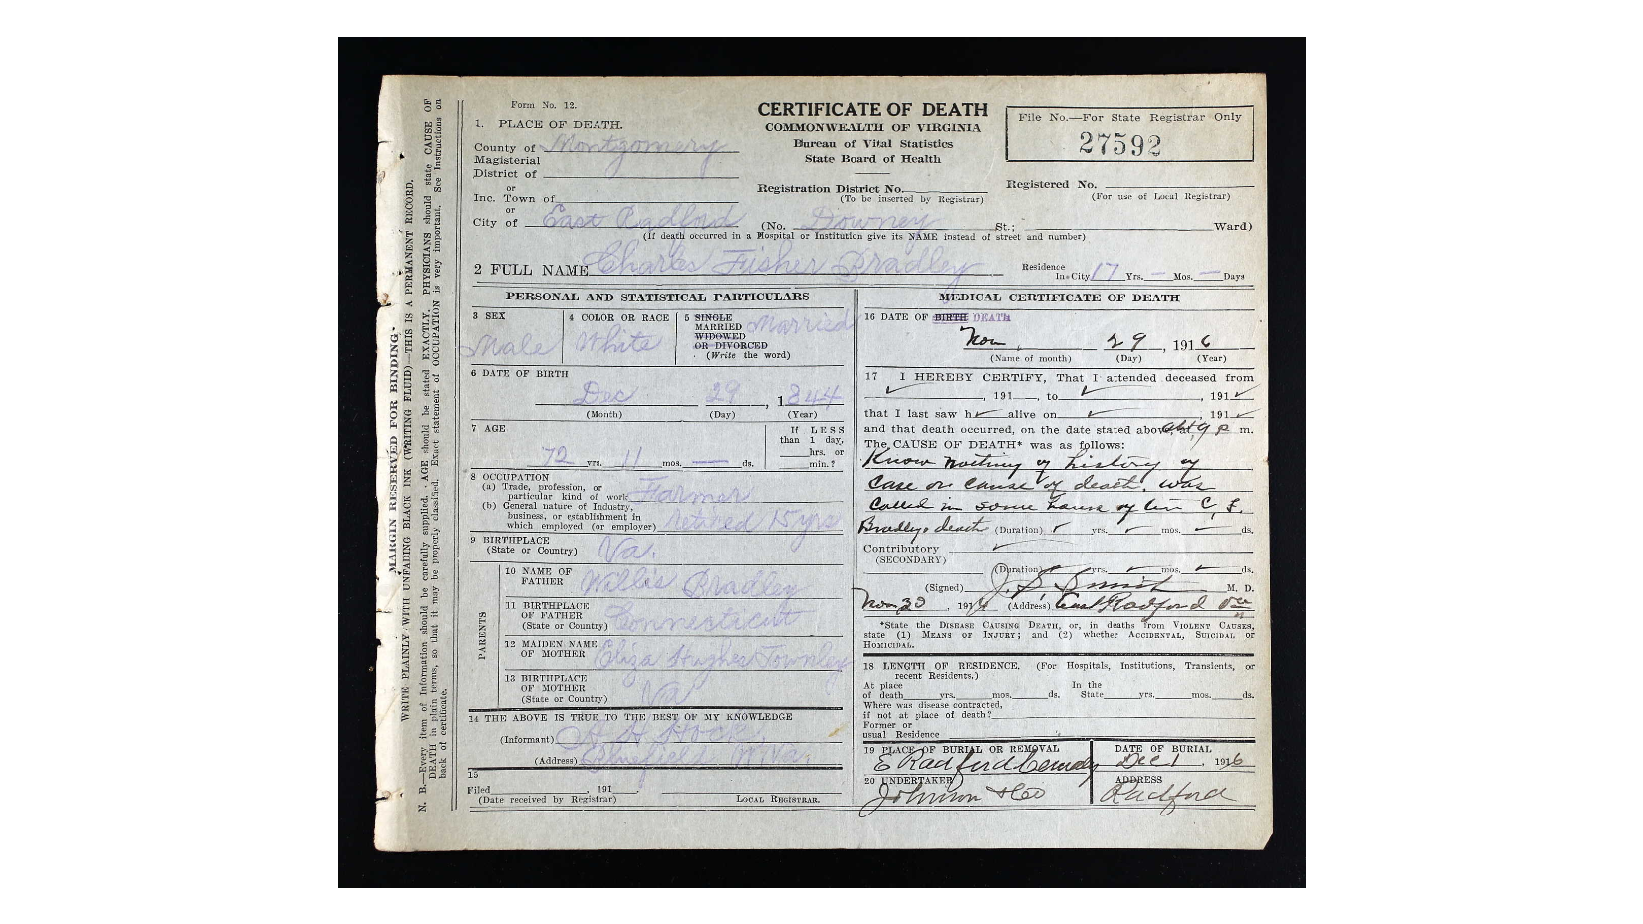 Form No. 12.
1. PLACE OF DEATH.
County of Montgomery
Magisterial
District of
or
Inc. Town of
or
City of East Radford
CERTIFICATE OF DEATH
COMMONWEALTH OF VIRGINIA
Bureau of Vital Statistics
State Board of Health
Registration District No.
(To be inserted by Registrar)
(No. Downey St.; Ward)
(If death occurred in a Hospital or Institution give its NAME instead of street and number)
File No.—For State Registrar Only
27592
Registered No.
(For use of Local Registrar)
2 FULL NAME Charles Fisher Bradley
Residence
In City 17 Yrs. — Mos. — Days
PERSONAL AND STATISTICAL PARTICULARS
3 SEX
Male
4 COLOR OR RACE
White
5 SINGLE
MARRIED
WIDOWED
OR DIVORCED
(Write the word)
Married
6 DATE OF BIRTH
Dec 29, 1844
(Month) (Day) (Year)
7 AGE
72 yrs. 11 mos. — ds.
If LESS
than 1 day,
hrs. or
min.?
8 OCCUPATION
(a) Trade, profession, or
particular kind of work Farmer
(b) General nature of Industry,
business, or establishment in
which employed (or employer) retired 15 yrs
9 BIRTHPLACE
(State or Country) Va.
PARENTS
10 NAME OF
FATHER Willis Bradley
11 BIRTHPLACE
OF FATHER
(State or Country) Connecticut
12 MAIDEN NAME
OF MOTHER Eliza Hughes Townley
13 BIRTHPLACE
OF MOTHER
(State or Country) Va
14 THE ABOVE IS TRUE TO THE BEST OF MY KNOWLEDGE
(Informant)
(Address) Bluefield W.Va.
15
Filed , 191
(Date received by Registrar) LOCAL REGISTRAR.
MEDICAL CERTIFICATE OF DEATH
16 DATE OF BIRTH DEATH
Nov, 29, 1916
(Name of month) (Day) (Year)
17 I HEREBY CERTIFY, That I attended deceased from
, 191 , to , 191
that I last saw h alive on , 191
and that death occurred, on the date stated above, at 9 P m.
The CAUSE OF DEATH* was as follows:
Know nothing of history of
case or cause of death. was
called in some hours after C. F.
Bradleys death (Duration) yrs. mos. ds.
Contributory
(SECONDARY)
(Duration) yrs. mos. ds.
(Signed) J. S. M. D.
Nov 30, 191 (Address) East Radford
*State the DISEASE CAUSING DEATH, or, in deaths from VIOLENT CAUSES,
state (1) MEANS OF INJURY; and (2) whether ACCIDENTAL, SUICIDAL or
HOMICIDAL.
18 LENGTH OF RESIDENCE. (For Hospitals, Institutions, Transients, or
recent Residents.)
At place
of death yrs. mos. ds.
In the
State yrs. mos. ds.
Where was disease contracted,
if not at place of death?
Former or
usual Residence
19 PLACE OF BURIAL OR REMOVAL
E Radford Cemetery
DATE OF BURIAL
Dec 1, 1916
20 UNDERTAKER
Johnson & Co
ADDRESS
Radford
MARGIN RESERVED FOR BINDING.
WRITE PLAINLY WITH UNFADING BLACK INK (WRITING FLUID)—THIS IS A PERMANENT RECORD.
N. B.—Every item of Information should be carefully supplied. AGE should be stated EXACTLY. PHYSICIANS should state CAUSE OF
DEATH in plain terms, so that it may be properly classified. Exact statement of OCCUPATION is very important. See Instructions on
back of certificate.